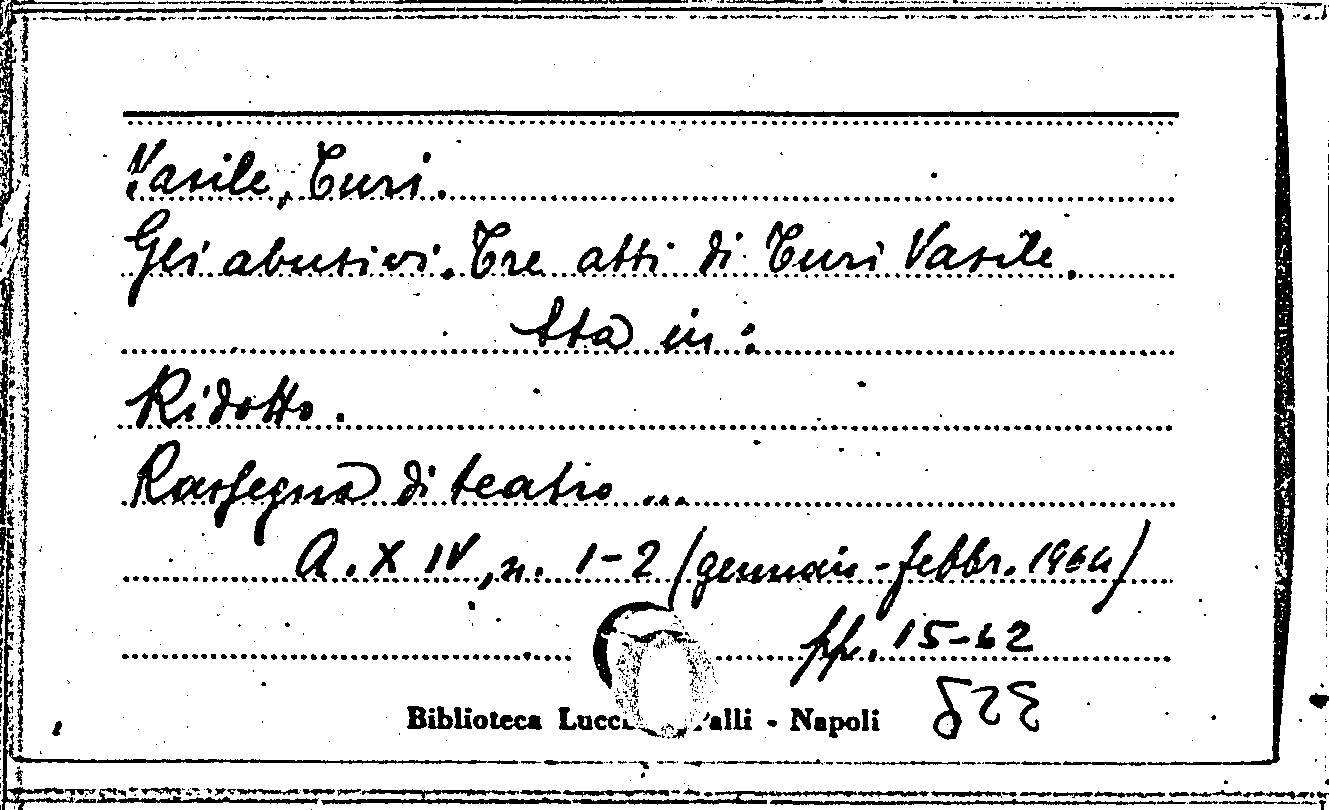 Vasile, Turi.
Gli abusivi. Tre atti di Turi Vasile.
Sta in:
Ridotto.
Rassegna di teatro ...
A. XIV, n. 1-2 (gennaio-febbr. 1964)
pp. 15-62
Biblioteca Lucc alli - Napoli